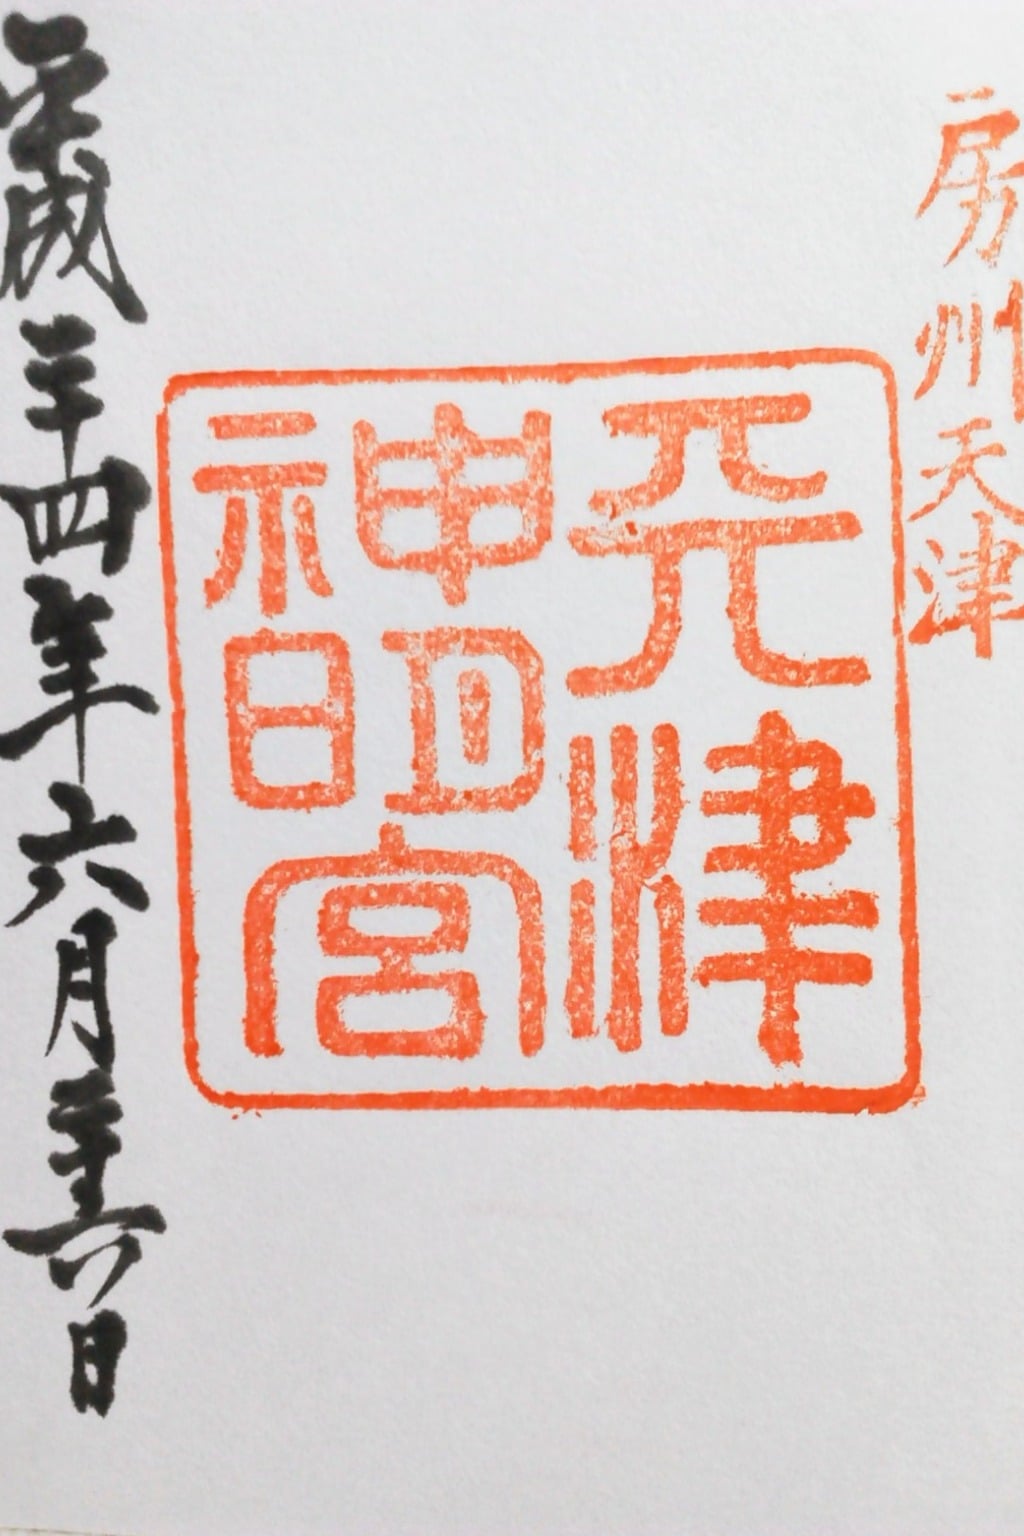 房州天津
天津
神明宮
平成二十四年六月二十六日